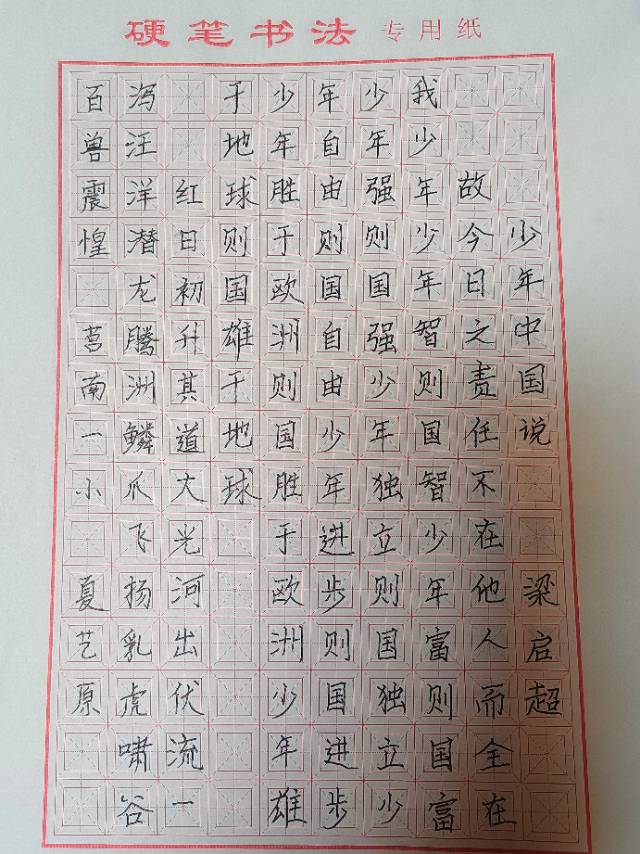 硬笔书法 专用纸
少年中国说 梁启超
故今日之责任不在他人而全在
我少年少年智则国智少年富则国富
少年强则国强少年独立则国独立少
年自由则国自由少年进步则国进步
少年胜于欧洲则国胜于欧洲少年雄
于地球则国雄于地球
红日初升其道大光河出伏流一
泻汪洋潜龙腾洲鳞爪飞扬乳虎啸谷
百兽震惶 莒南一小 夏艺原